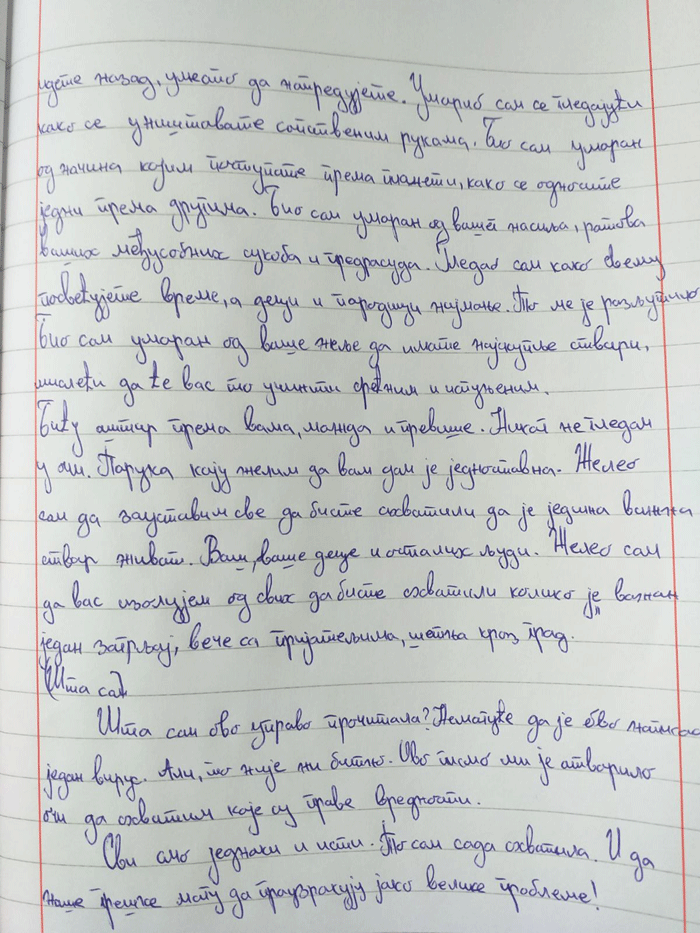 идете назад, уместо да напредујете. Уморио сам се гледајући
како се уништавате сопственим рукама. Био сам уморан
од начина којим поступате према планети, како се односите
једни према другима. Био сам уморан од вашег насиља, ратова
ваших међусобних сукоба и предрасуда. Гледао сам како свему
посвећујете време, а деци и породици најмање. То ме је разљутило
Био сам уморан од ваше жеље да имате најскупље ствари,
мислећи да ће вас то учинити срећним и испуњеним.
Бићу оштар према вама, можда и превише. Никог не гледам
у очи. Порука коју желим да вам дам је једноставна. Желео
сам да зауставим све да бисте схватили да је једина важна
ствар живот. Ваш, ваше деце и осталих људи. Желео сам
да вас изолујем од свих да бисте схватили колико је важан
један загрљај, вече са пријатељима, шетња кроз град.
Шта сад
Шта сам ово управо прочитала? Немогуће да је ово написао
један вирус. Али, то није ни битно. Ово писмо ми је отворило
очи да схватим које су праве вредности.
Сви смо једнаки и исти. То сам сада схватила. И да
наше грешке могу да проузракују јако велике проблеме!